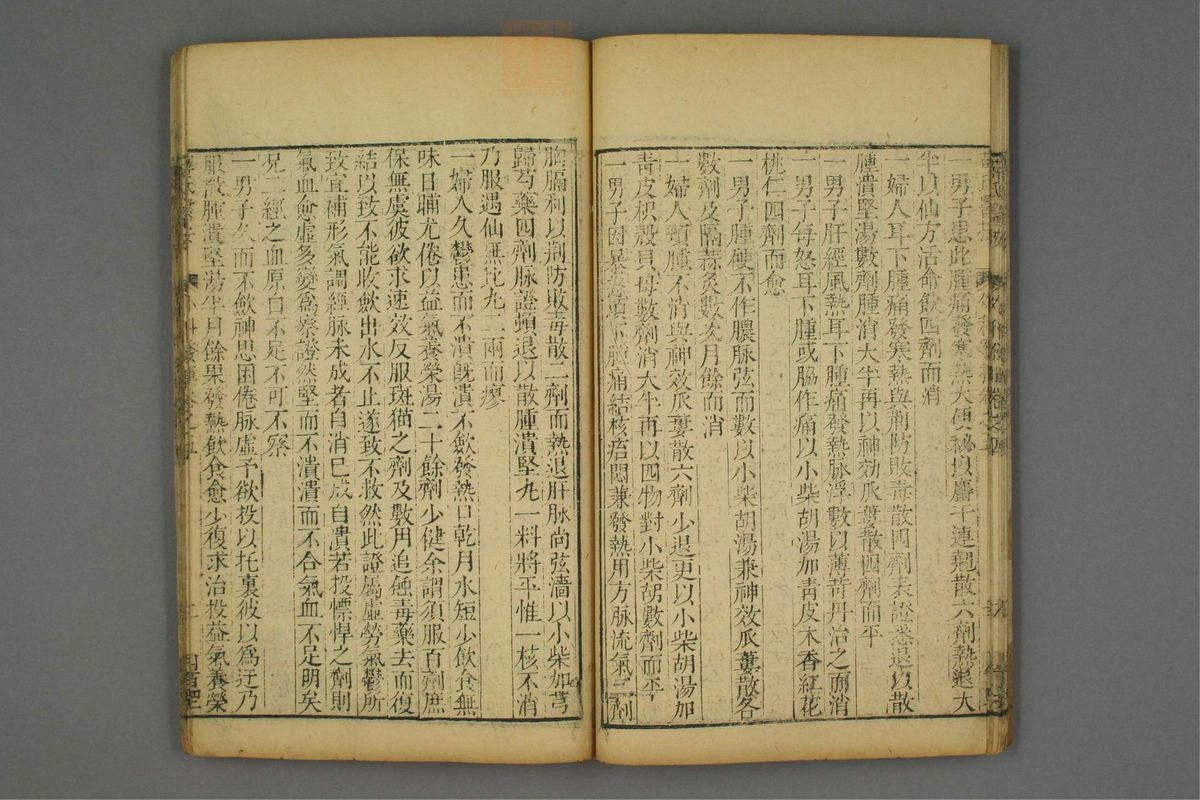 一男子患此腫痛發寒熱大便秘以射干連翹散六劑熱退大
半以仙方活命飲四劑而消
一婦人耳下腫痛發寒熱與荊防敗毒散四劑表證悉退以散
腫潰堅湯數劑腫消大半再以神効瓜蔞散四劑而平
一男子肝經風熱耳下腫痛發熱脉浮數以薄苛丹治之而消
一男子每怒耳下腫或脇作痛以小柴胡湯加青皮木香紅花
桃仁四劑而愈
一男子腫硬不作膿脉弦而數以小柴胡湯兼神效瓜蔞散各
數劑及隔蒜灸數次月餘而消
一婦人頸腫不消與神效瓜蔞散六劑少退更以小柴胡湯加
青皮枳殼貝母數劑消大半再以四物對小柴胡數劑而平
一男子因暴怒項下腫痛結核痞悶兼發熱用方脉流氣二劑
胸膈利以荊防敗毒散二劑而熱退肝脉尚弦濇以小柴加芎
歸芍藥四劑脉證頓退以散腫潰堅丸一料將平惟一核不消
乃服遇仙無比丸二兩而瘳
一婦人久鬱患而不潰旣潰不歛發熱口乾月水短少飲食無
味日晡尤倦以益氣養榮湯二十餘劑少健余謂須服百劑庶
保無虞彼欲求速效反服斑猫之劑及數用追蝕毒藥去而復
結以致不能收歛出水不止遂致不救然此證屬虛勞氣鬱所
致宜補形氣調經脉未成者自消已成自潰若投慓悍之劑則
氣血愈虛多變爲瘵證然堅而不潰潰而不合氣血不足明矣
况二經之血原自不足不可不察
一男子久而不歛神思困倦脉虛予欲投以托裏彼以爲迂乃
服散腫潰堅湯半月餘果發熱飲食愈少復求治投益氣養榮